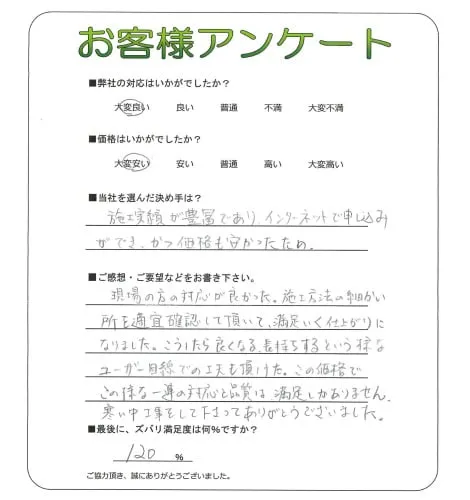 お客様アンケート
■弊社の対応はいかがでしたか？
大変良い 良い 普通 不満 大変不満
■価格はいかがでしたか？
大変安い 安い 普通 高い 大変高い
■当社を選んだ決め手は？
施工実績が豊富であり、インターネットで申込み
ができ、かつ価格も安かったため。
■ご感想・ご要望などをお書き下さい。
現場の方の対応が良かった。施工方法の細かい
所を適宜確認して頂いて、満足いく仕上がりに
なりました。こうしたら良くなる、長持ちするという様な
ユーザー目線での工夫も頂けた。この価格で
この様な一連の対応と品質は、満足しかありません。
寒い中工事をして下さってありがとうございました。
■最後に、ズバリ満足度は何％ですか？
120 %
ご協力頂き、誠にありがとうございました。